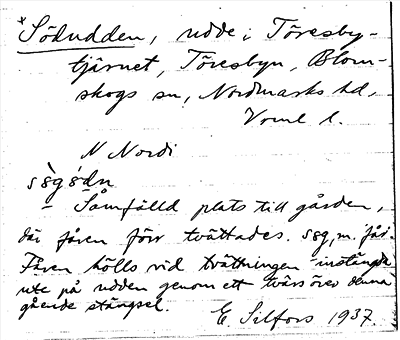 *Södudden, udde i Töresby-
tjärnet, Töresbyn, Blom-
skogs sn, Nordmarks hd,
Vrml l.
N Nordi
– Samfälld plats till gården,
där fåren förr tvättades. sög, m. får.
Fåren hölls vid tvättningen instängda
ute på udden genom ett tvärs över denna
gående stängsel.
E. Silfors 1937.